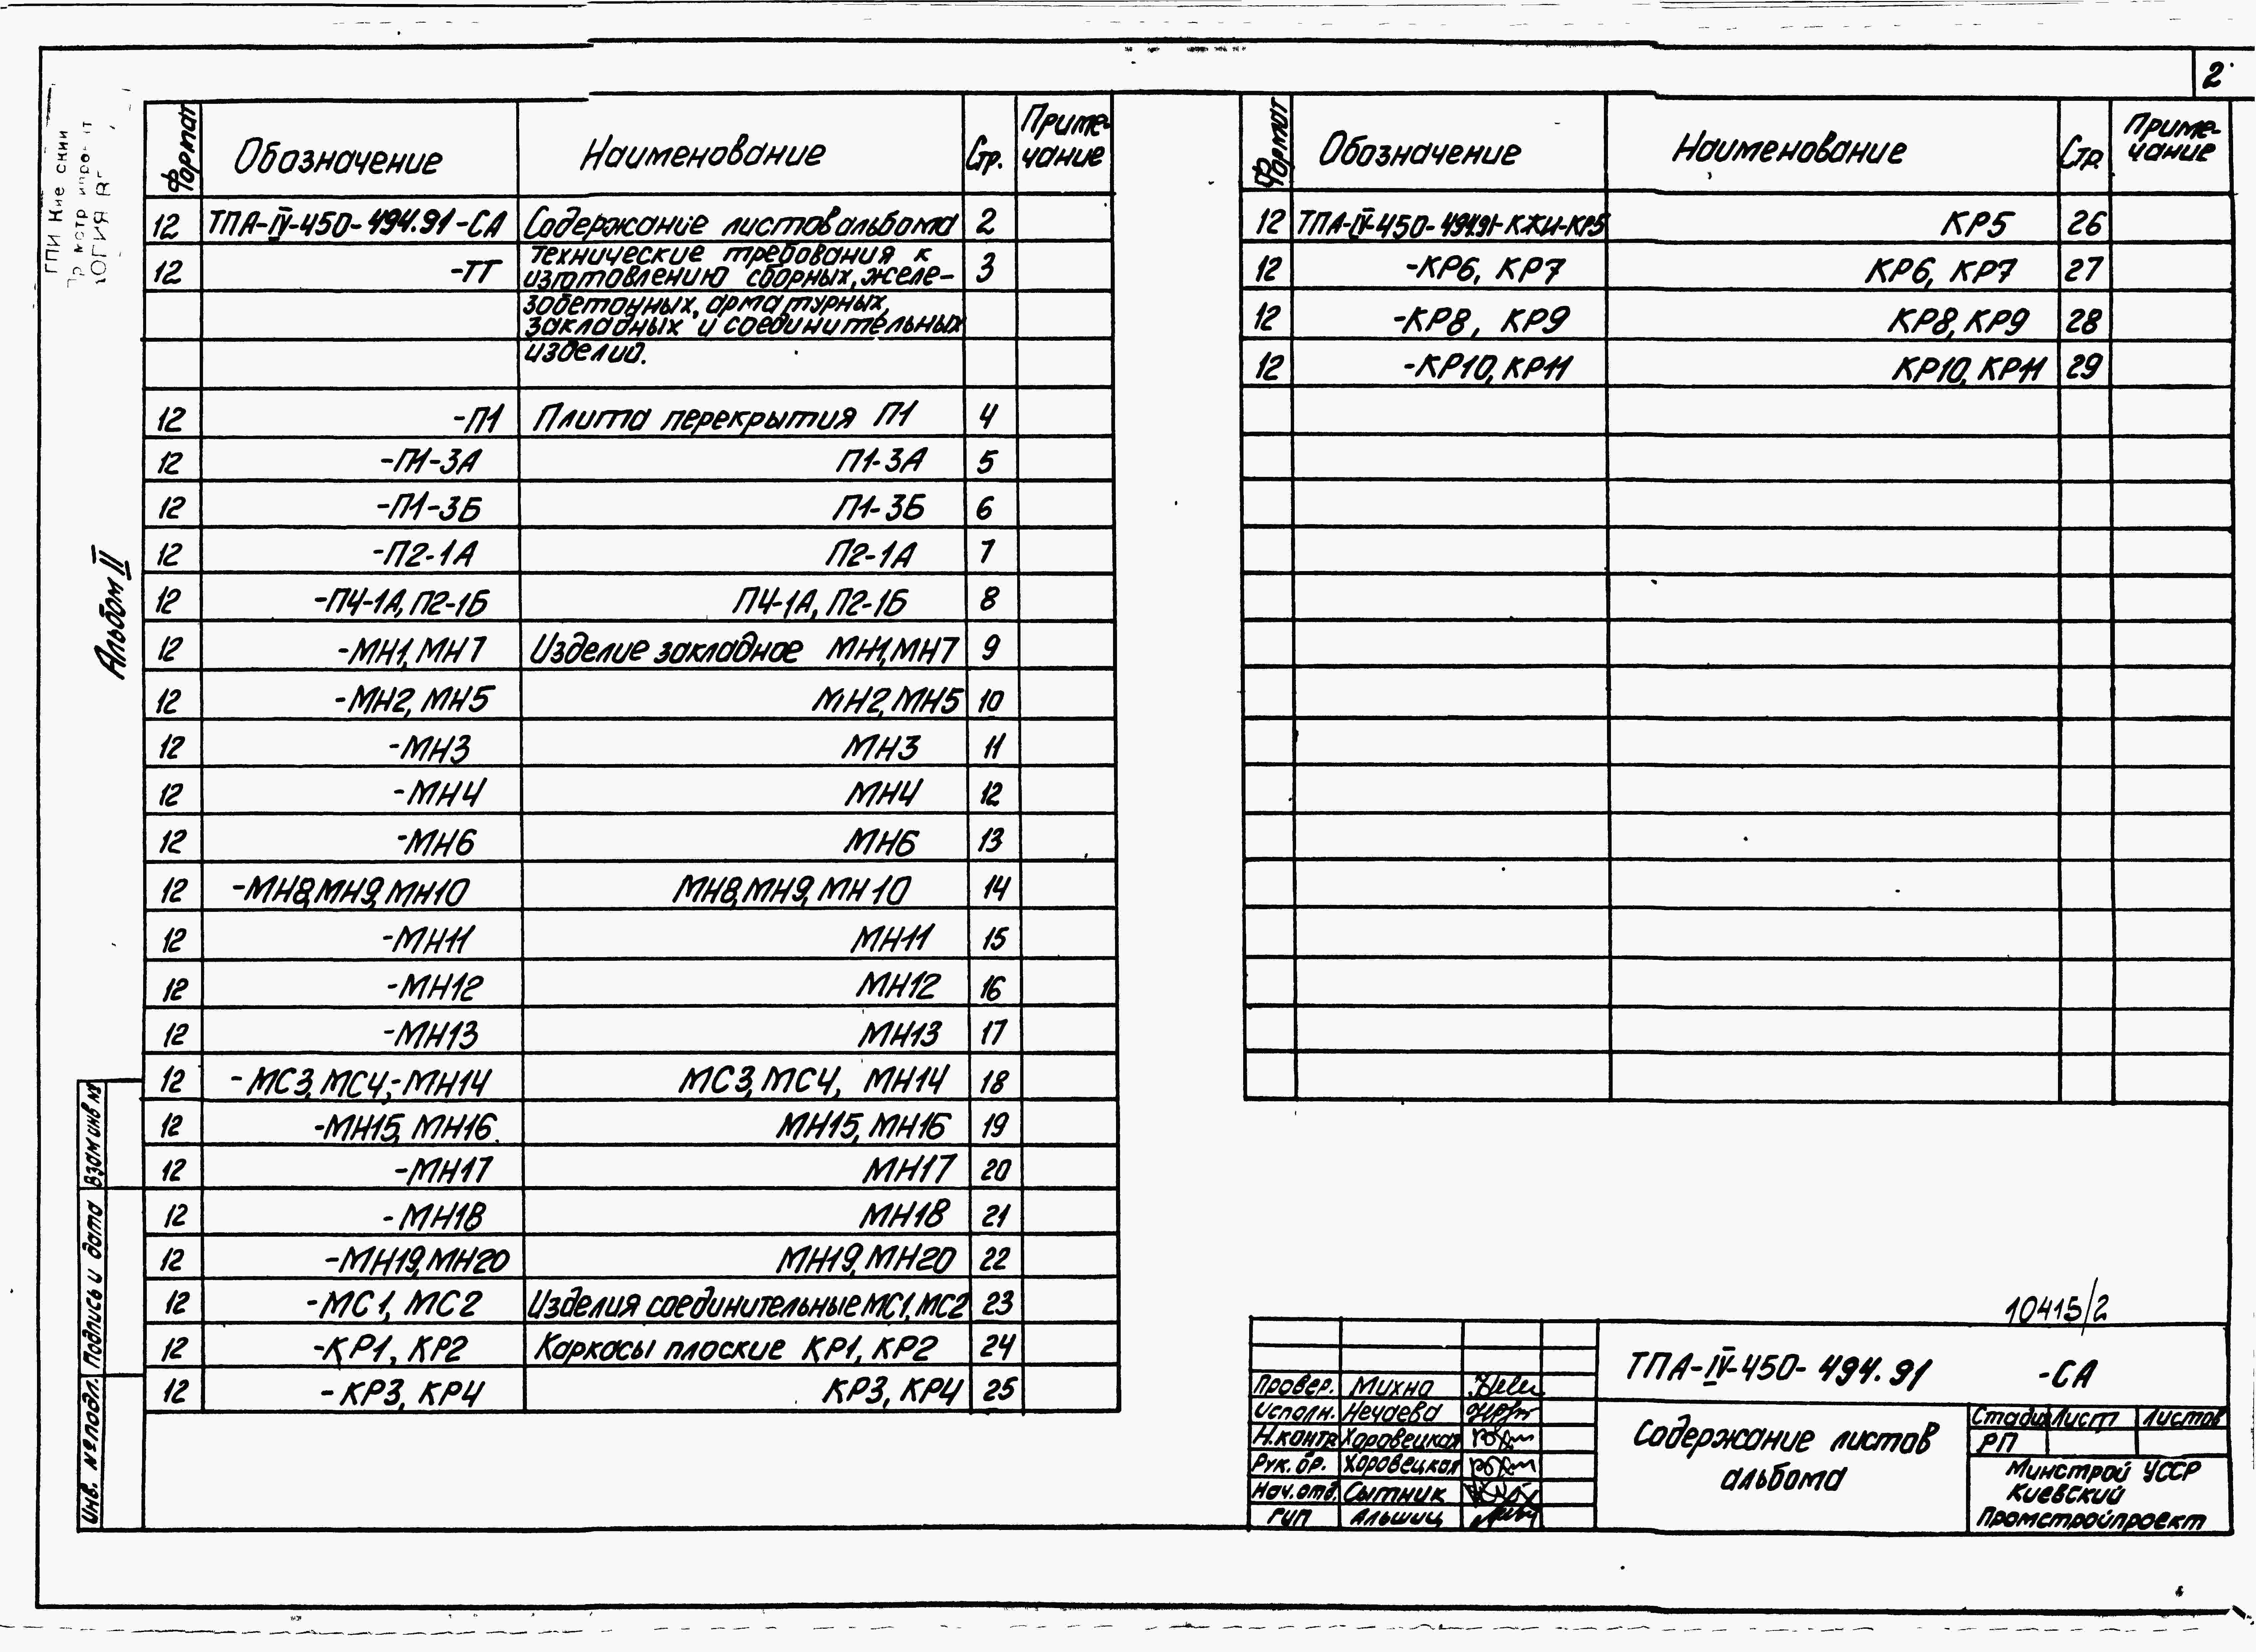 2
Формат Обозначение Наименование Стр. Приме-
чание
12 ТПА-IV-450-494.91-СА Содержание листов альбома 2
12 -ТТ технические требования к 3
изготовлению сборных, желе-
зобетонных, арматурных,
закладных и соединительных
изделий.
12 -П1 Плита перекрытия П1 4
12 -П1-3А П1-3А 5
12 -П1-3Б П1-3Б 6
12 -П2-1А П2-1А 7
12 -П4-1А, П2-1Б П4-1А, П2-1Б 8
12 -МН1, МН7 Изделие закладное МН1, МН7 9
12 -МН2, МН5 МН2, МН5 10
12 -МН3 МН3 11
12 -МН4 МН4 12
12 -МН6 МН6 13
12 -МН8, МН9, МН10 МН8, МН9, МН10 14
12 -МН11 МН11 15
12 -МН12 МН12 16
12 -МН13 МН13 17
12 -МС3, МС4, -МН14 МС3, МС4, МН14 18
12 -МН15, МН16 МН15, МН16 19
12 -МН17 МН17 20
12 -МН18 МН18 21
12 -МН19, МН20 МН19, МН20 22
12 -МС1, МС2 Изделия соединительные МС1, МС2 23
12 -КР1, КР2 Каркасы плоские КР1, КР2 24
12 -КР3, КР4 КР3, КР4 25
Формат Обозначение Наименование Стр Приме-
чание
12 ТПА-IV-450-494.91-КЖИ-КР5 КР5 26
12 -КР6, КР7 КР6, КР7 27
12 -КР8, КР9 КР8, КР9 28
12 -КР10, КР11 КР10, КР11 29
Альбом II
Взам инв №
Подпись и дата
Инв. № подл.
10415/2
Провер. Михно
Исполн. Нечаева
Н.контр Хоровецкая
Рук. бр. Хоровецкая
Нач. отд. Сытник
ГИП Альшиц
ТПА-IV-450-494.91 -СА
Содержание листов
альбома
Стадия Лист Листов
РП
Минстрой УССР
Киевский
Промстройпроект